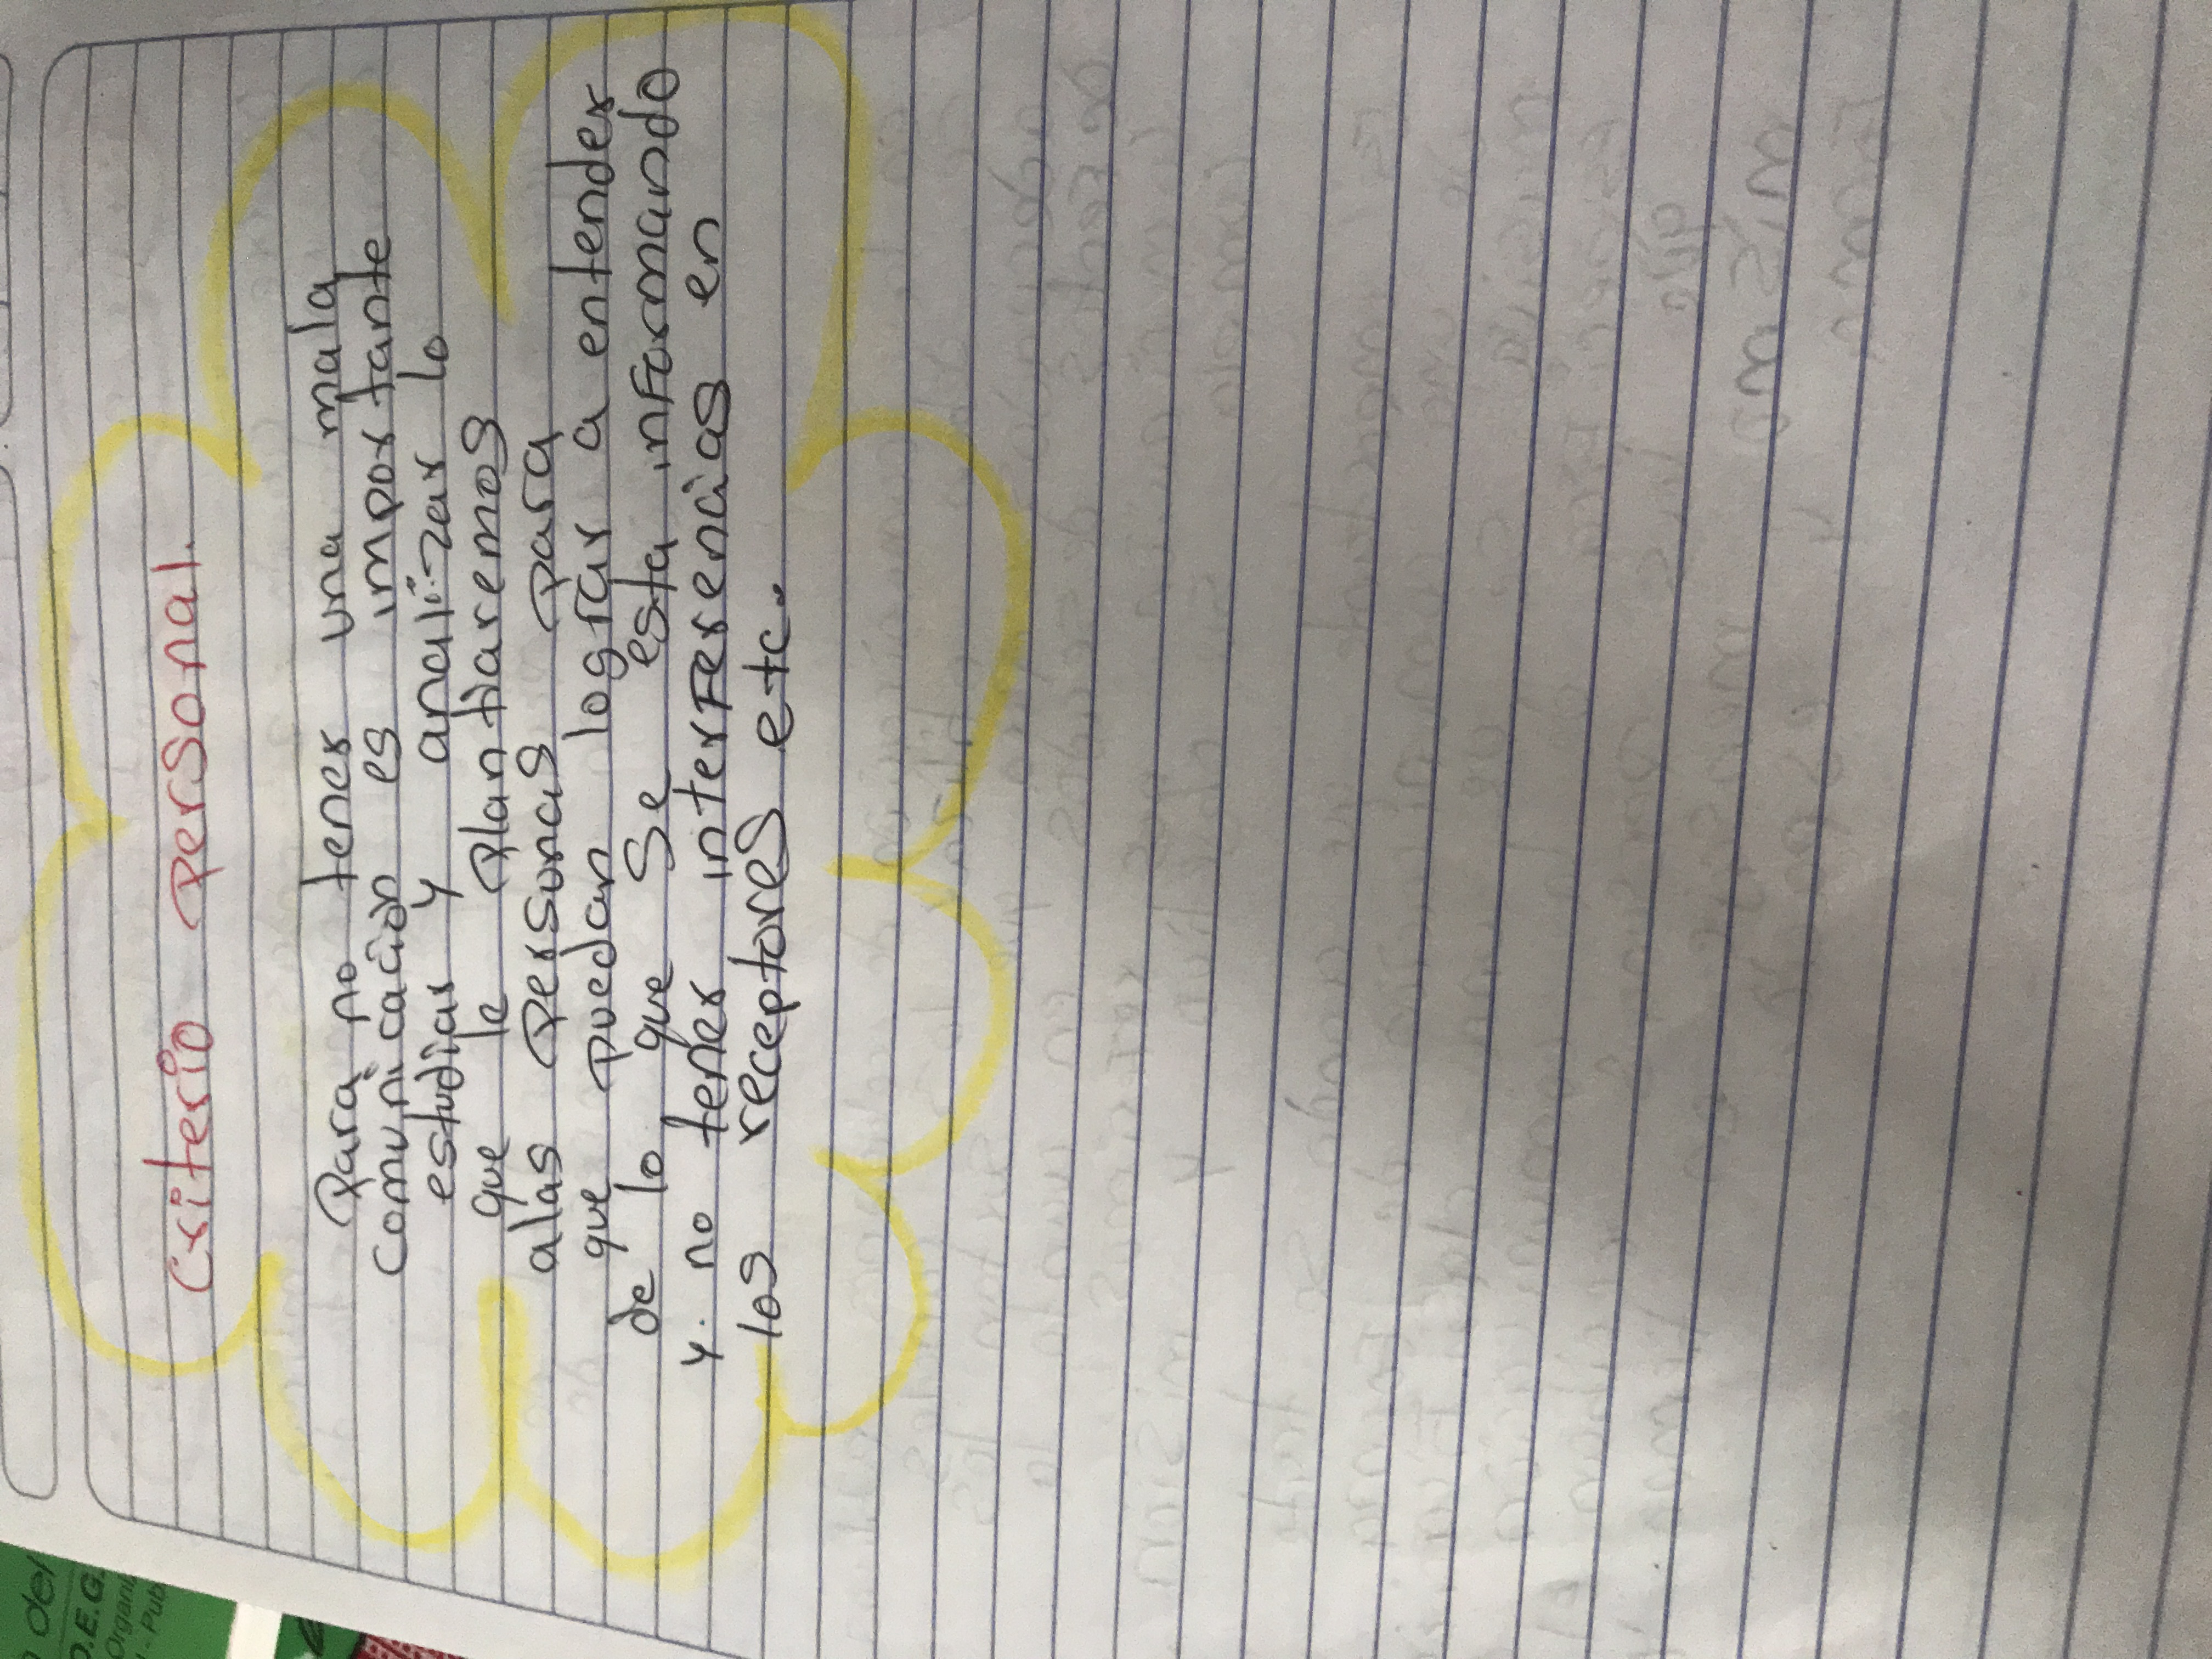 Criterio Personal.
Para no tener una mala
comunicación es importante
estudiar y analizar lo
que le plantiaremos
alas personas para
que puedan lograr a entender
de lo que se esta informando
y. no tener interferencias en
los receptores etc.
del
D.E.G.
Organi
- Pub